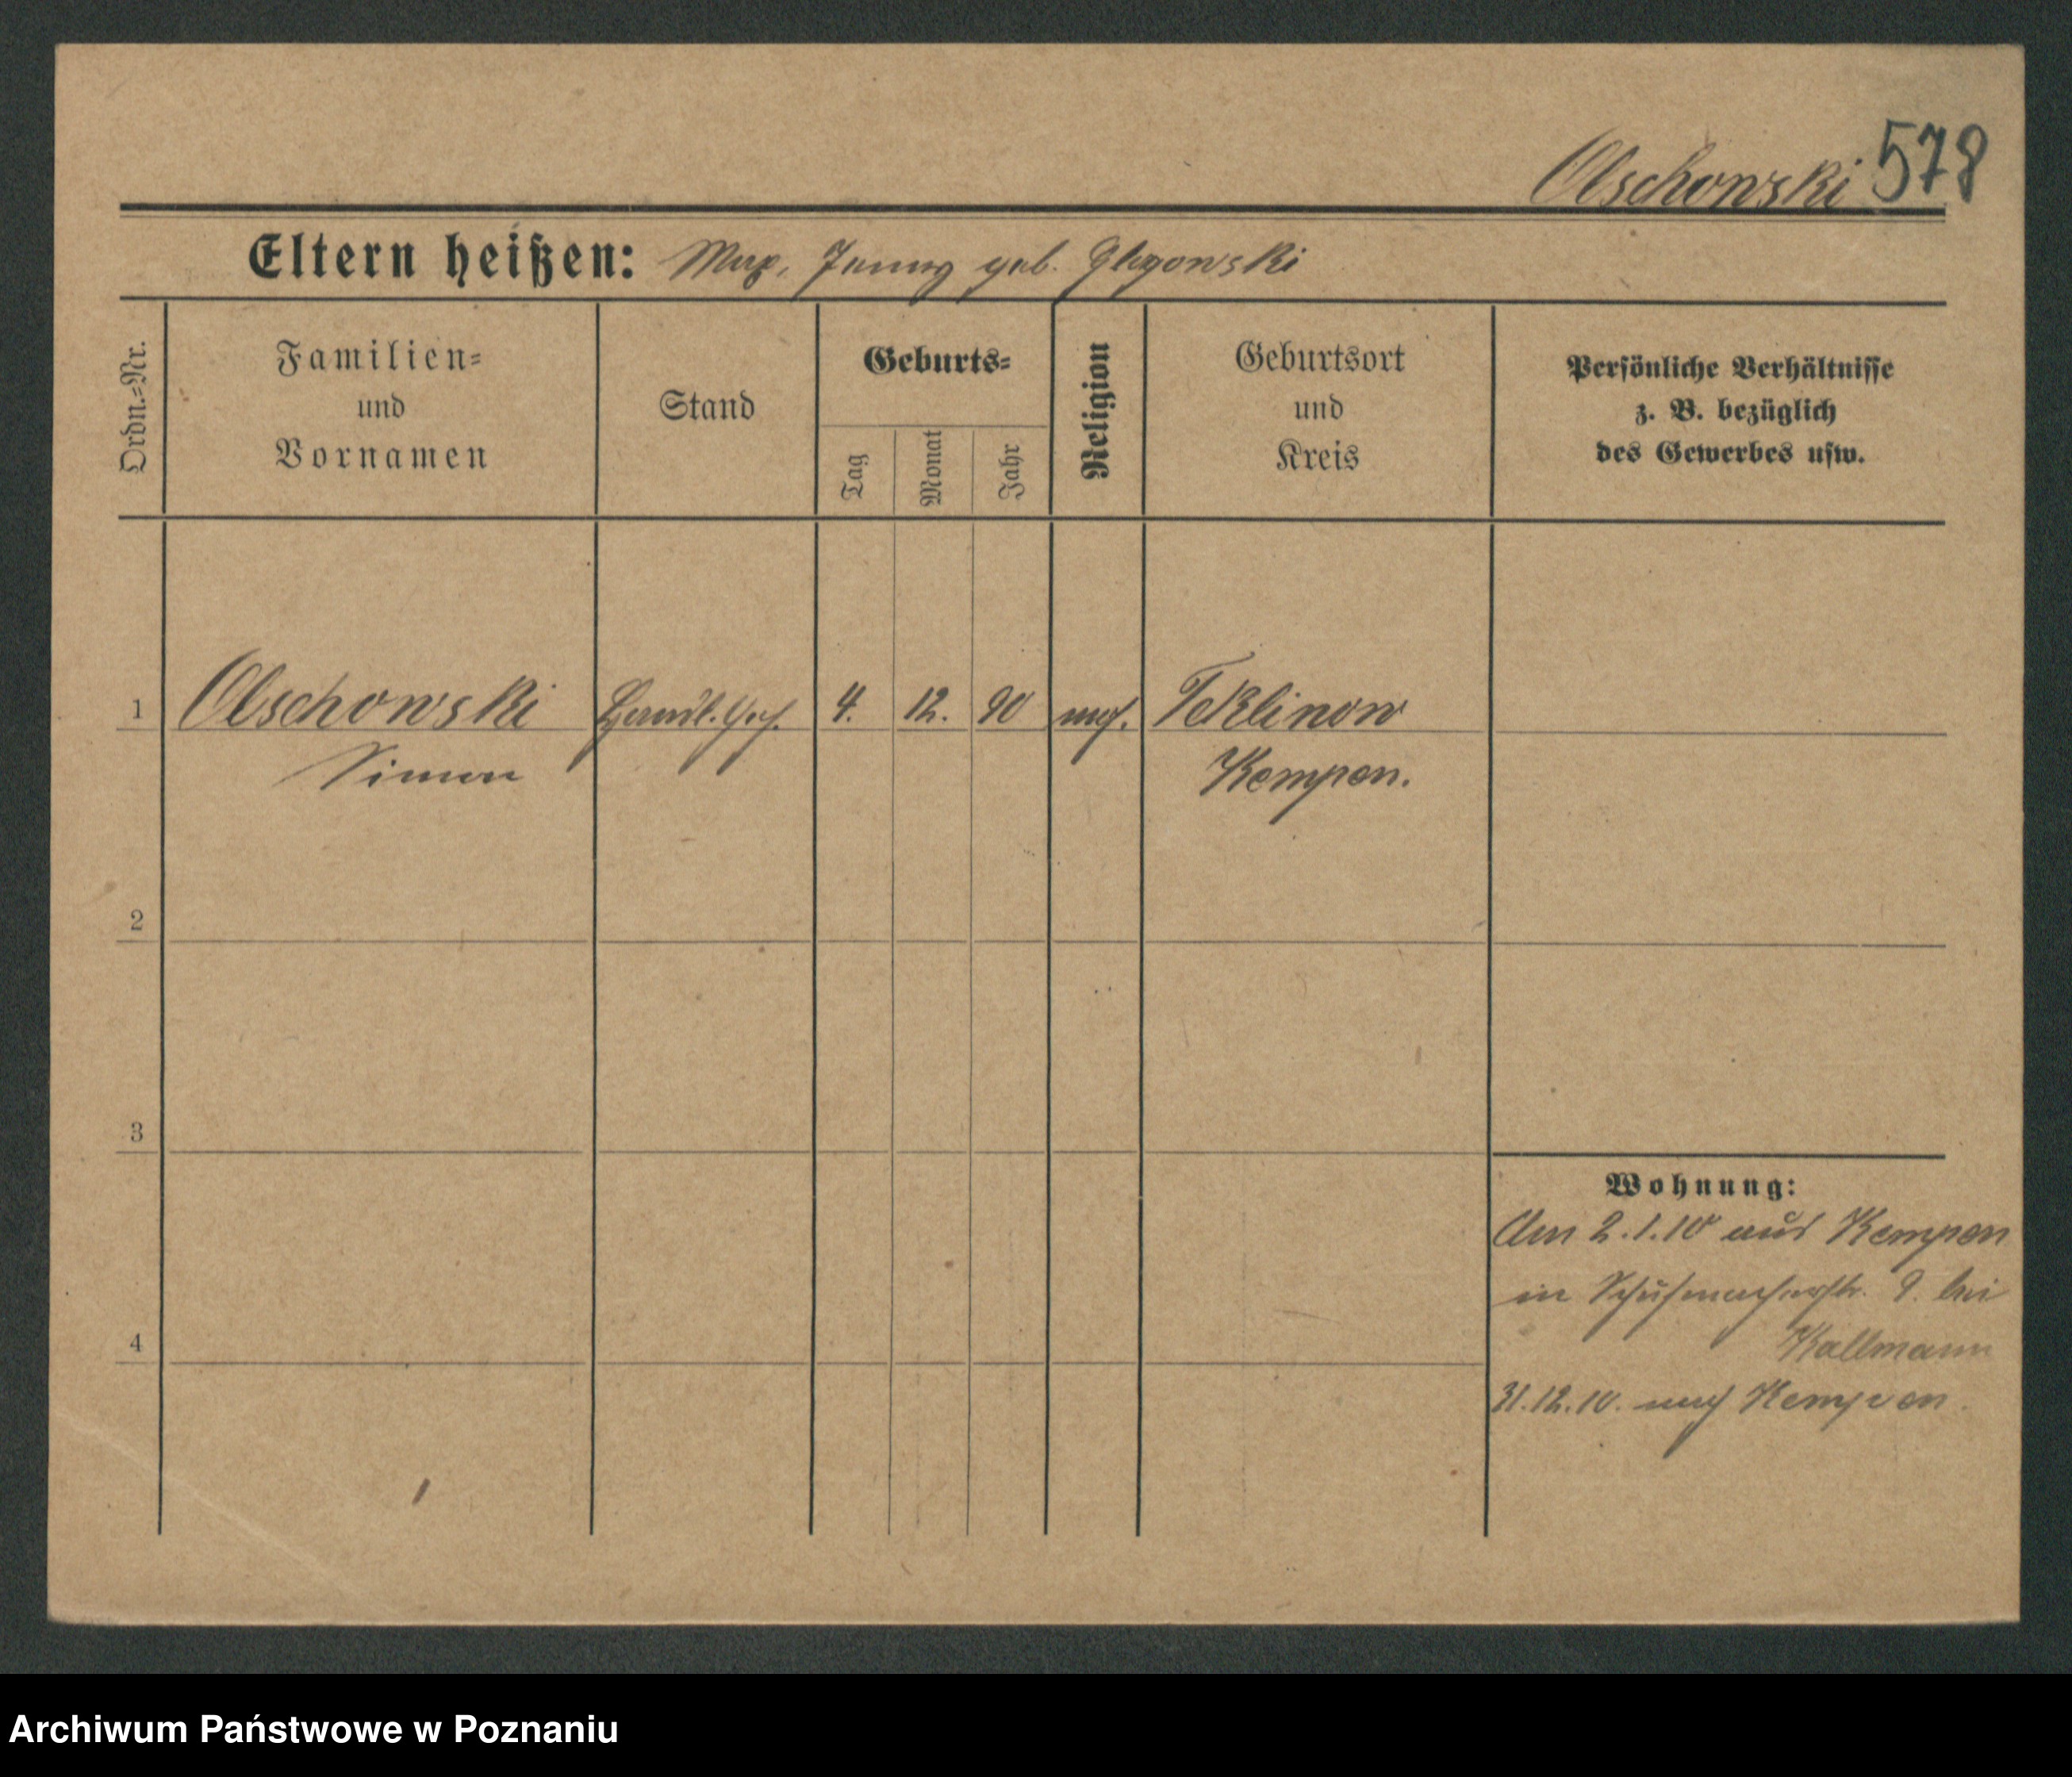 578
Olschowski
Eltern heißen: Max, Jenny geb. Glogowski
Ordn.=Nr.
Familien=
und
Vornamen
Stand
Geburts=
Tag
Monat
Jahr
Religion
Geburtsort
und
Kreis
Persönliche Verhältnisse
z. B. bezüglich
des Gewerbes usw.
1 Olschowski Handl. Geh. 4. 12. 90 mos. Teklinow
Simon Kempen.
2
3
Wohnung:
Am 2.1.10 aus Kempen
in Schuhmacherstr. 9. bei
4
Kallmann
31.12.10. nach Kempen.
Archiwum Państwowe w Poznaniu